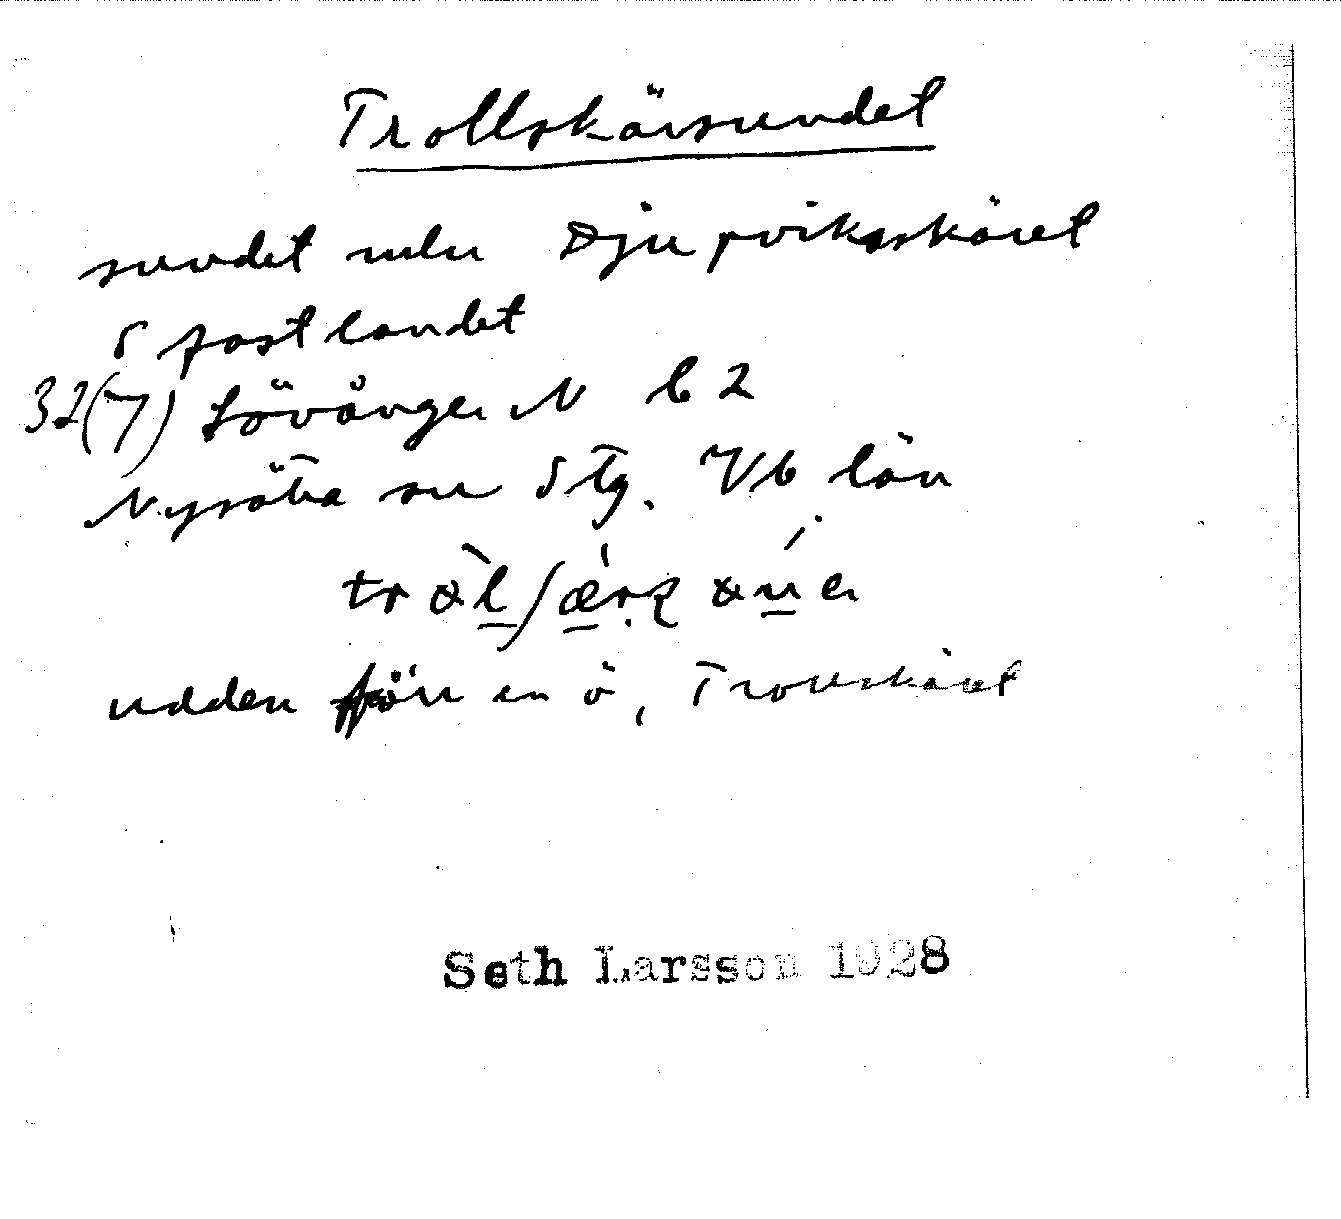 Trollskärsundet
sundet mellan Djupviksskäret
o fastlandet
32(7) Lövånger N b 2
Nysätra sn Stg. Vb län
udden från en ö, Trollskäret
Seth Larsson 1928